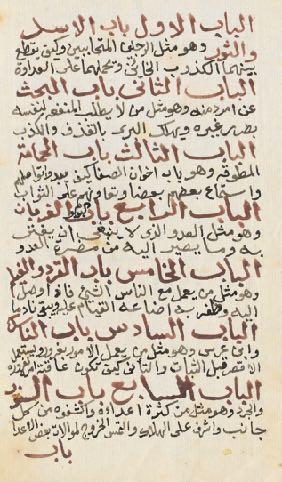 الباب الاول باب الاسد
والثور وهو مثل الرجلين المتحابين وكيف توقع
بينهما الكذوب الخائن ويحملهما على العداوة
الباب الثاني باب البحث
عن امر دمنه وهو مثل من لا يطلب المنفعة لنفسه
بضر غيره ويهلك البرى بالقذف والكذب
الباب الثالث باب الحمامة
المطوقة وهو باب اخوان الصفا كيف يبدو تواصلهم
واستماع بعضهم ببعض وتعاونهم على
الباب الرابع باب البوم والغربان
وهو مثل العدو الذى لا ينبغي ان يغتر
به وما يصير اليه من مضرة العدو
الباب الخامس باب القرد والغيلم
وهو مثل من يعمل مع الناس فاذا وصل
اليه وظفر به اضاعه ويبقى نادما
الباب السادس باب الناسك
وابن عرس وهو مثل من يعمل الامر بغير رويه
قبل الثبات والتاني كيف تكون عاقبة امره
الباب السابع باب السنور
والجرد وهو مثل من كثرة اعداؤه واكتنفوه من كل
جانب واشرف على الهلاك والتمس الخروج بموالات بعض الاعدا
باب